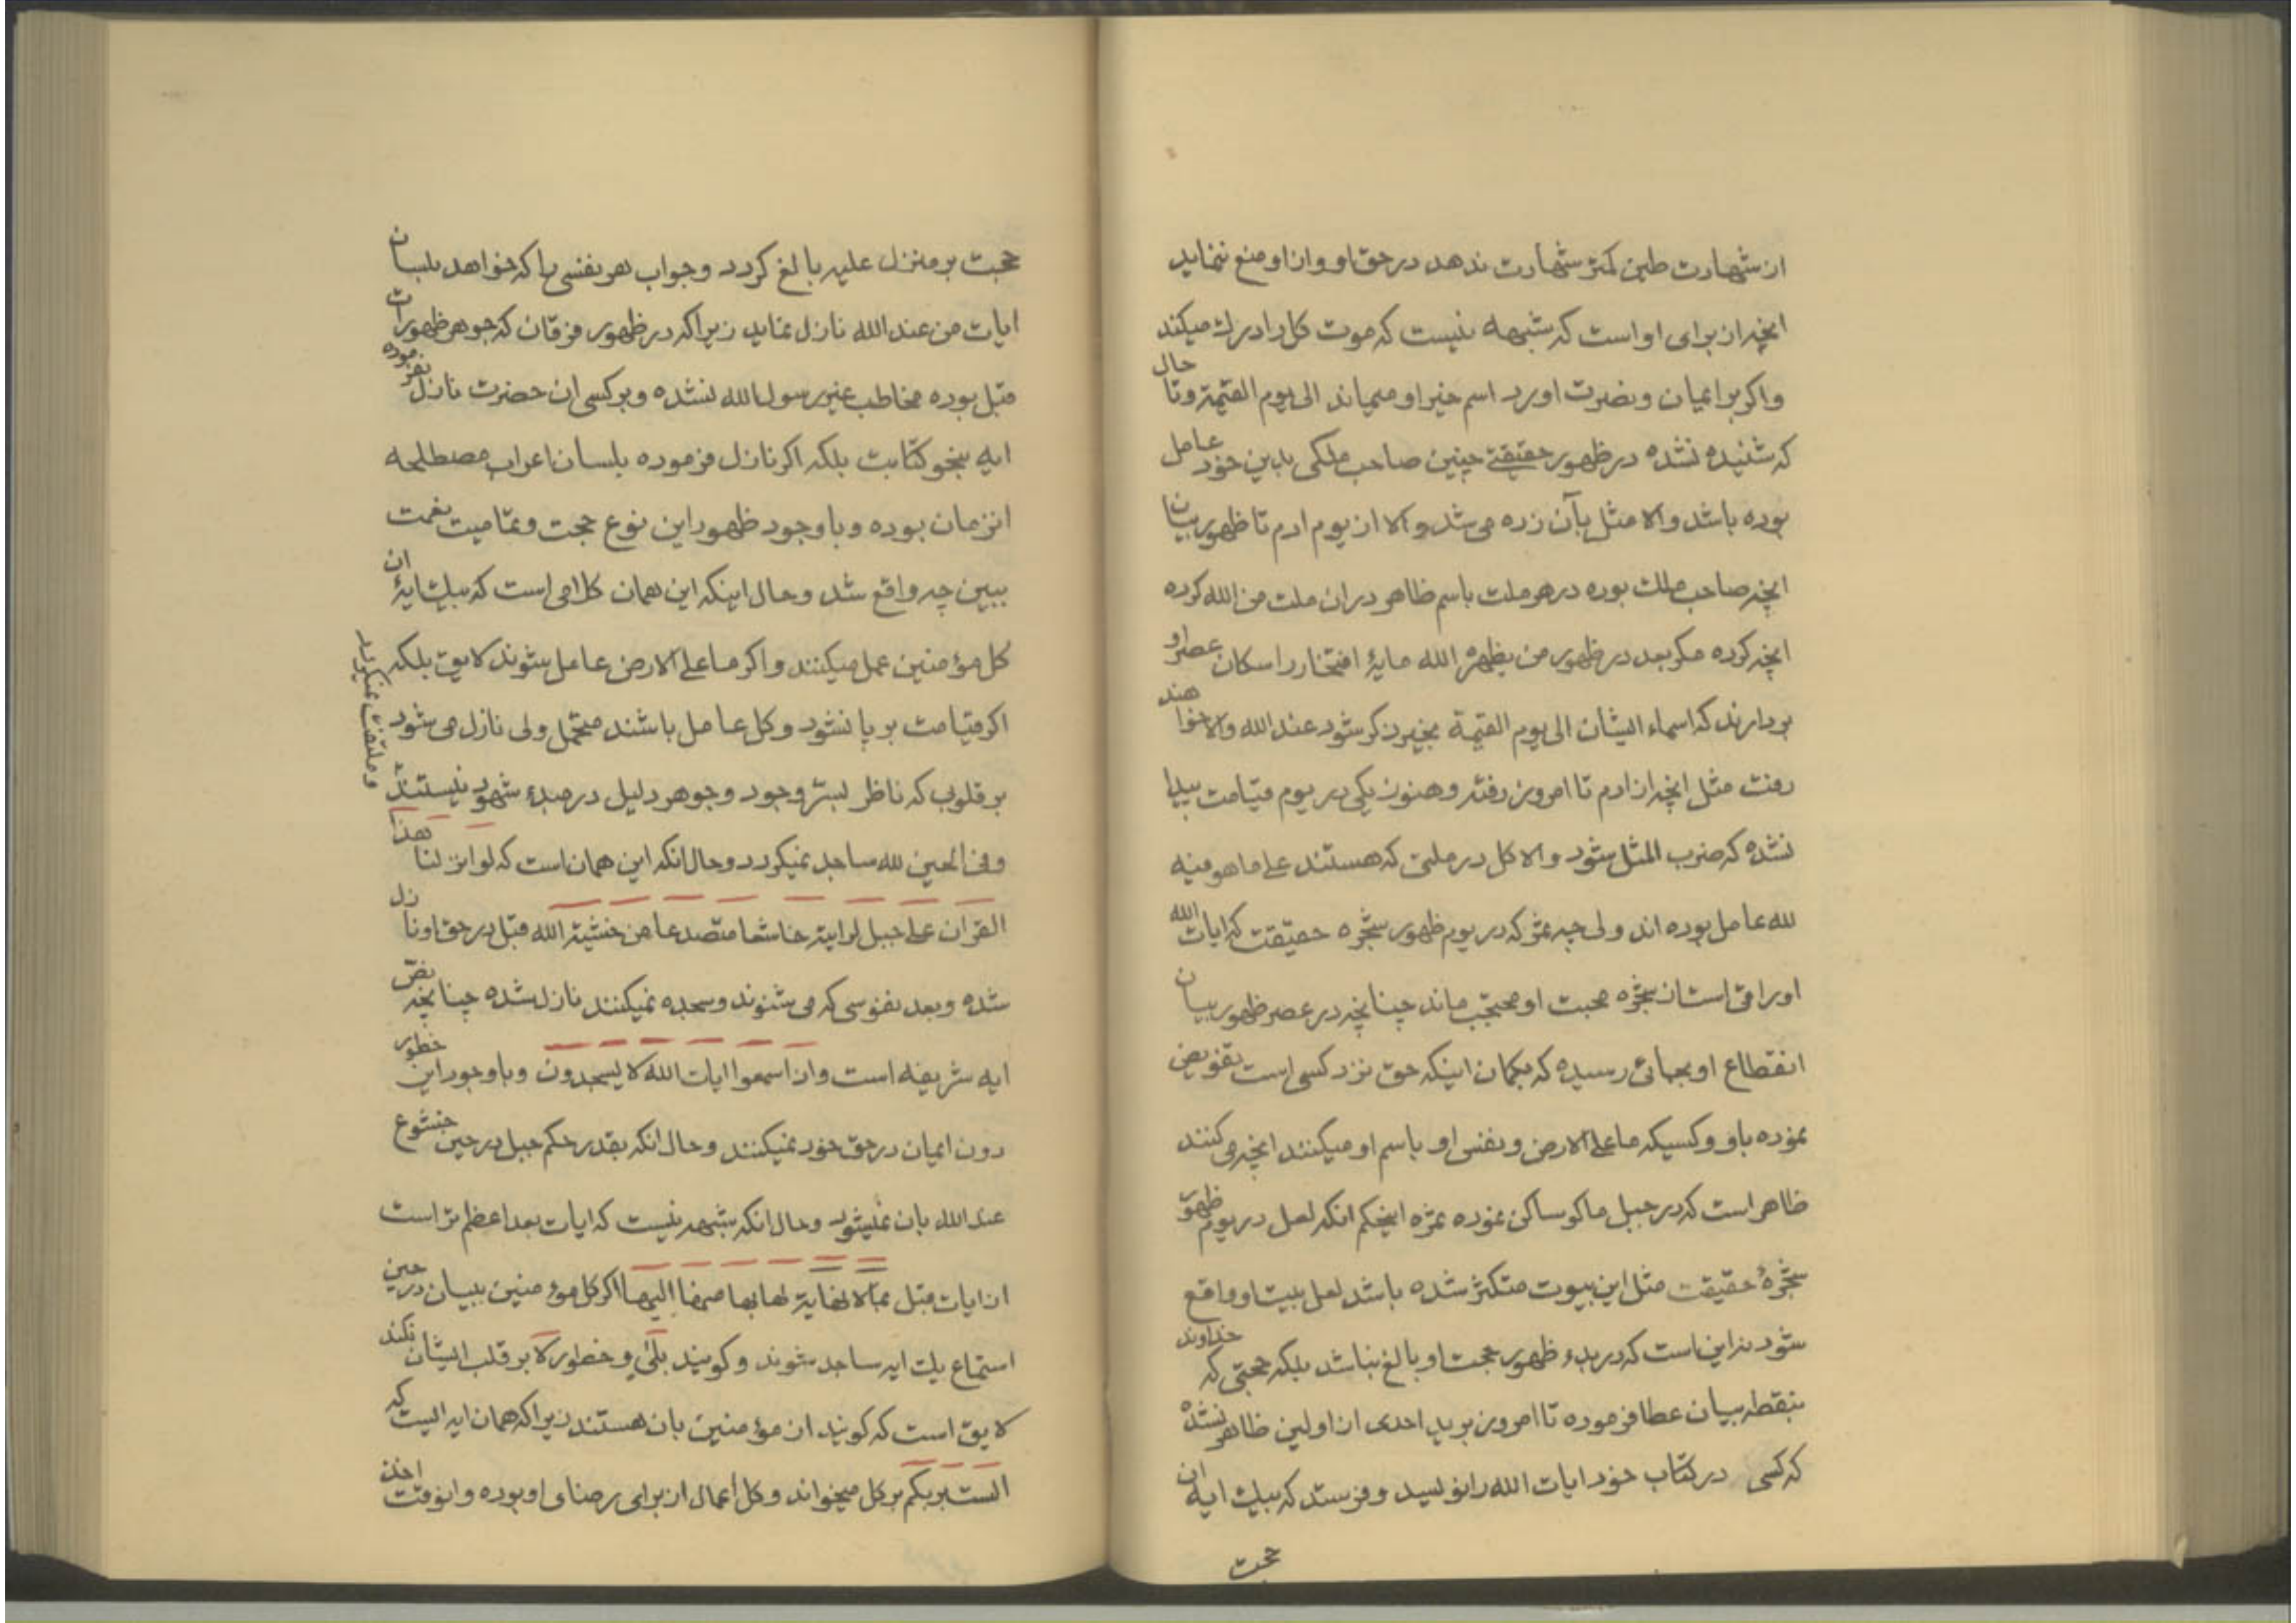 از شهادت طین کمتر شهادت ندهد در حق او و از او منع ننماید
انچه از برای او است که شبهه نیست که موت کل را درك میکند
واکر بر ایمان و نصرت اورد اسم خیر او میماند الی یوم القیمة و تا حال
که شنیده نشده در ظهور حقیقتے چنین صاحب ملکی بدین خود عامل
بوده باشد والا مثل بآن زده می شد والا از یوم ادم تا ظهور بیان
انچه صاحب ملك بوده در هر ملت باسم ظاهر در ان ملت من الله کرده
انچه کرده مکر بعد در ظهور من یظهره الله مایهٔ افتخار را سکان عصر او
بردارند که اسماء ایشان الی یوم القیمة بخیر ذکر شود عند الله والا خواهند
رفت مثل انچه از ادم تا امروز رفته و هنوز یکی در یوم قیامت پیدا
نشده که ضرب المثل شود والا کل در ملتی که هستند علے ما هو فیه
لله عامل بوده اند ولی چه ثمر که در یوم ظهور شجره حقیقت که ایات الله
او راقی است از شجره محبت او محتجب ماند چنانچه در عصر ظهور بیان
انقطاع او بجائی رسیده که بکمان اینکه حق نزد کسی است تفویض
نموده باو و کسیکه ما علے الارض و نفس او باسم او میکنند انچه می کنند
ظاهر است که در جبل ماکو ساکن نموده ثمره اینحکم انکه لعل در یوم ظهور
شجرهٔ حقیقت مثل این بیوت متکثر شده باشد لعل ببیت او واقع
شود نه این است که در بدء ظهور حجت او بالغ نباشد بلکه حجتی که خداوند
بنقطه بیان عطا فرموده تا امروز بر ید احدی از اولین ظاهر نشده
که کسی در کتاب خود ایات الله را نویسد و فرستد که بیك ایه ان
حجت
حجت بر منزل علیه بالغ کردد و جواب هر نفسی را که خواهد بلسان
ایات من عند الله نازل نماید زیرا که در ظهور فرقان که جوهر ظهورات
قبل بوده مخاطب غیر رسول الله نشده و بر کسی ان حضرت نازل نفرموده
ایه بنحو کتابت بلکه اکر نازل فرموده بلسان اعراب مصطلحه
انزمان بوده و با وجود ظهور این نوع حجت و تمامیت نعمت
ببین چه واقع شد و حال اینکه این همان کلامی است که بیك ایهٔ ان
کل مؤمنین عمل میکنند و اکر ما علے الارض عامل شوند لایق بلکه
اکر قیامت بر پا نشود و کل عامل باشند محتمل ولی نازل می شود
بر قلوبی که ناظر بسرّ وجود و جوهر دلیل در مبدء شهود نیستند
و ملتفت نمیکردد
وفی الحین لله ساجد نمیکردد و حال انکه این همان است که لو انزلنا هذا
القران علے جبل لرایته خاشعا متصدعا من خشیة الله قبل در حق او نازل
شده و بعد نفوسی که می شنوند و سجده نمیکنند نازل شده چنانچه نص
ایه شریفه است واذ اسمعوا ایات الله لا یسجدون و با وجود این خطور
دون ایمان در حق خود نمیکنند و حال انکه بقدر حکم جبل در حین خشوع
عند الله بان نمیشود و حال انکه شبهه نیست که ایات بعد اعظم تر است
از ایات قبل بمالا نهایة لها بها منها الیها اکر کل مؤمنین ببیان در حین
استماع یك ایه ساجد شوند و کویند بلی و خطور لا بر قلب ایشان نکند
لایق است که کویند از مؤمنین بان هستند زیرا که همان ایه الیست که
الست بربکم بر کل میخواند و کل اعمال از برای رضای او بوده و انوقت اخذ